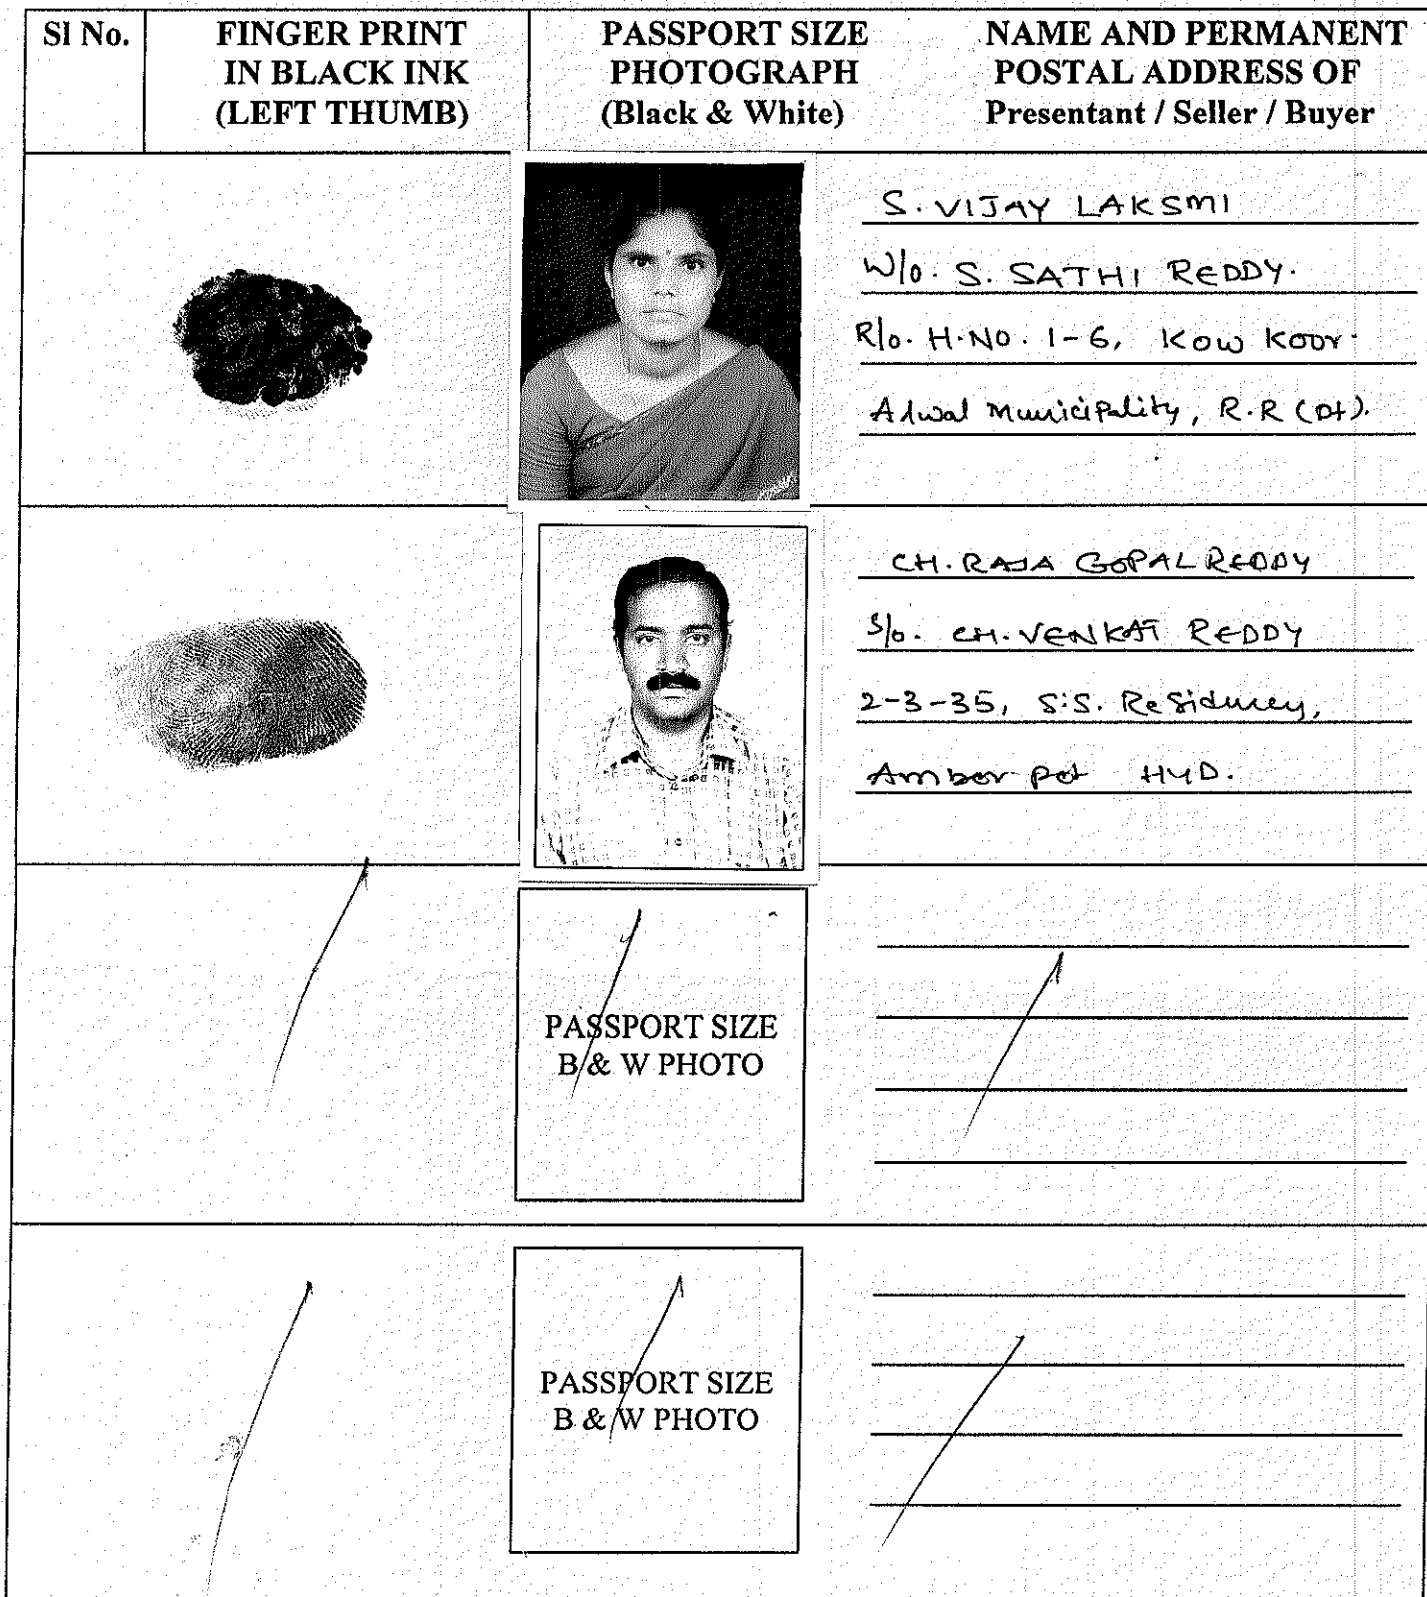 Sl No.
FINGER PRINT
IN BLACK INK
(LEFT THUMB)
PASSPORT SIZE
PHOTOGRAPH
(Black & White)
NAME AND PERMANENT
POSTAL ADDRESS OF
Presentant / Seller / Buyer
S. VIJAY LAKSMI
W/o. S. SATHI REDDY.
R/o. H.NO. 1-6, Kow Koor.
Alwal Municipality, R.R (Dt).
CH. RAJA GOPAL REDDY
S/o. CH. VENKAT REDDY
2-3-35, S.S. Residency,
Amber pet HYD.
PASSPORT SIZE
B & W PHOTO
PASSPORT SIZE
B & W PHOTO